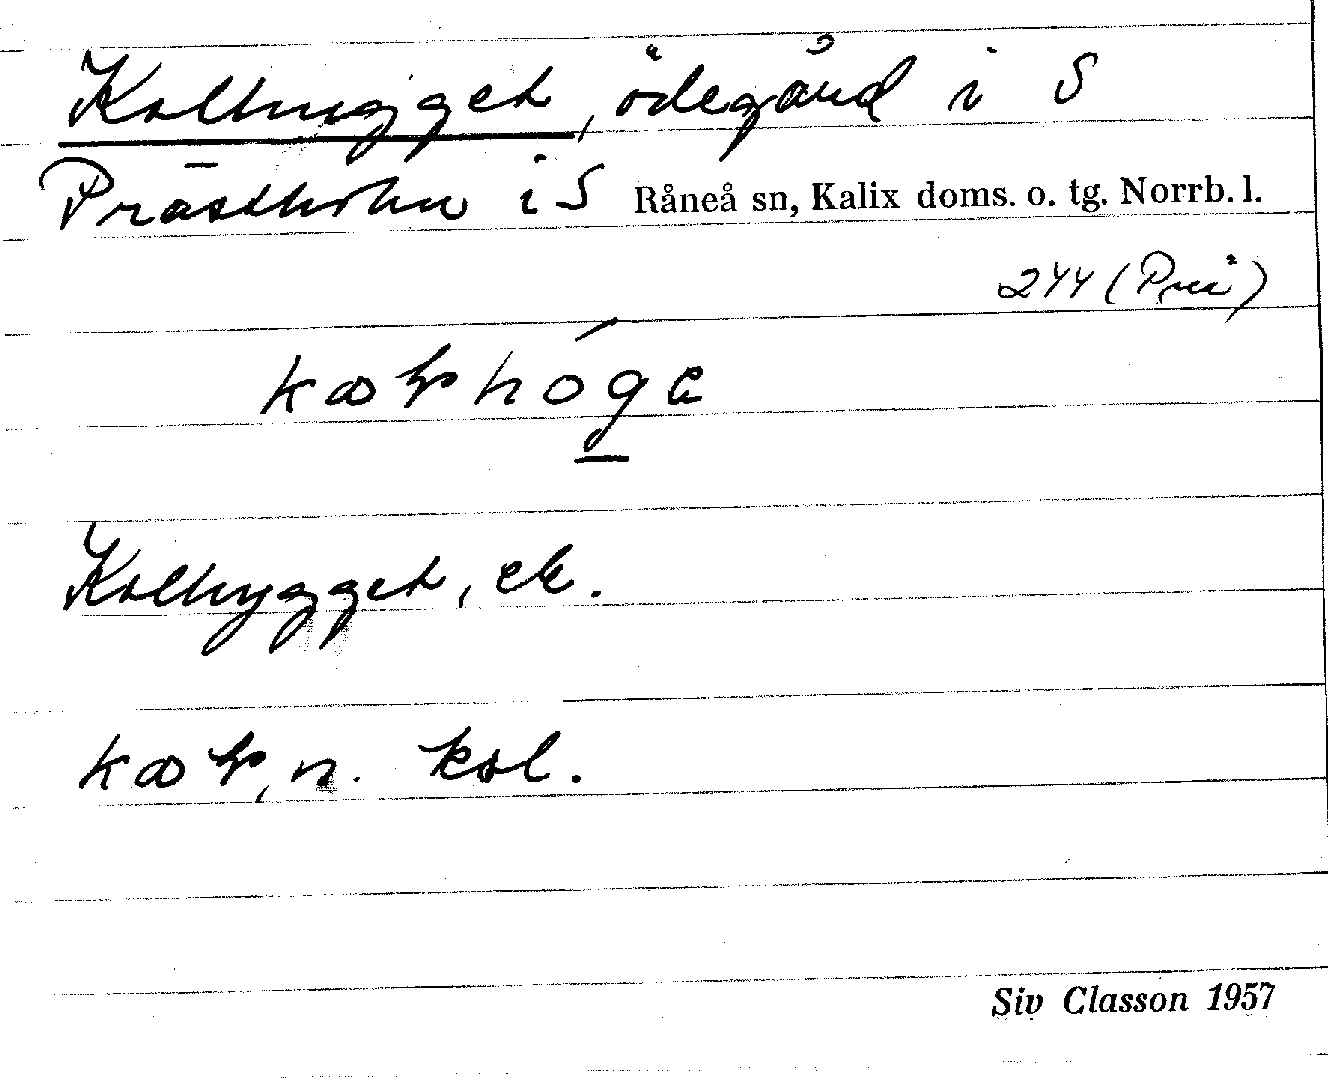 Kolhygget, ödegård i S
Prästholm i S Råneå sn, Kalix doms. o. tg. Norrb. l.
244
Kolhygget, ek.
n. kol.
Siv Classon 1957